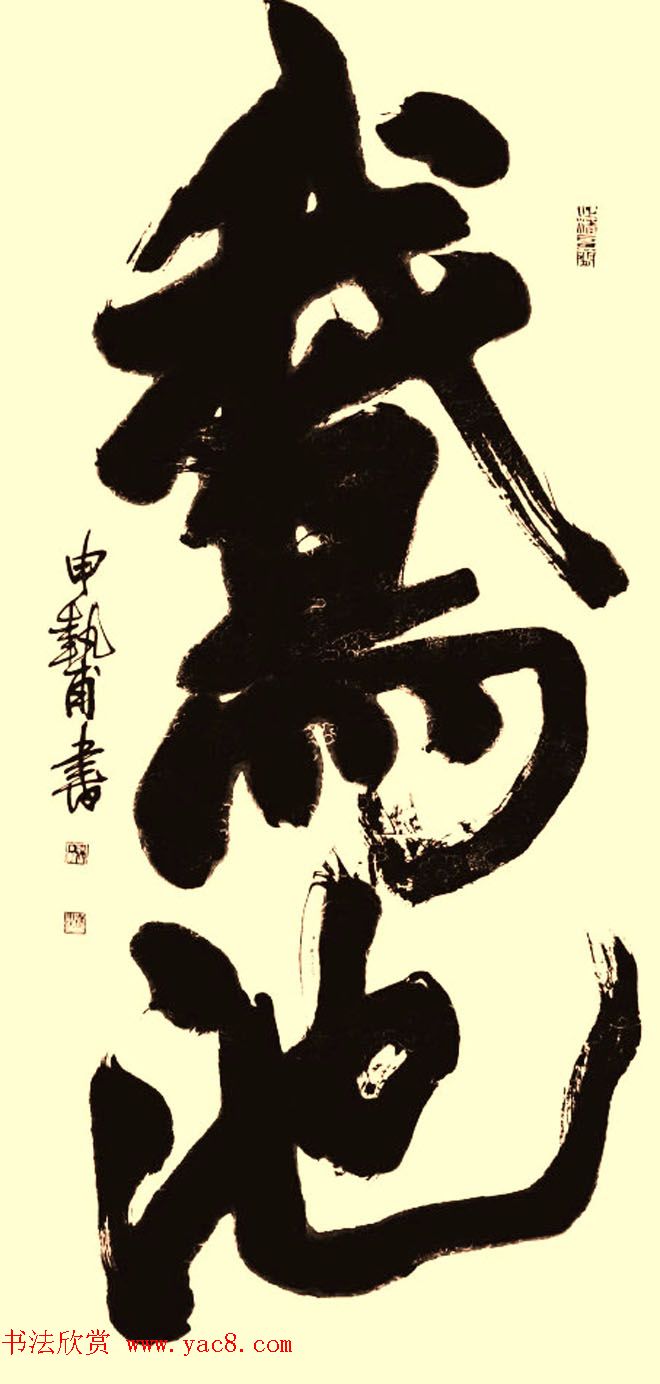 鵞池
申執甫書
书法欣赏 www.yac8.com